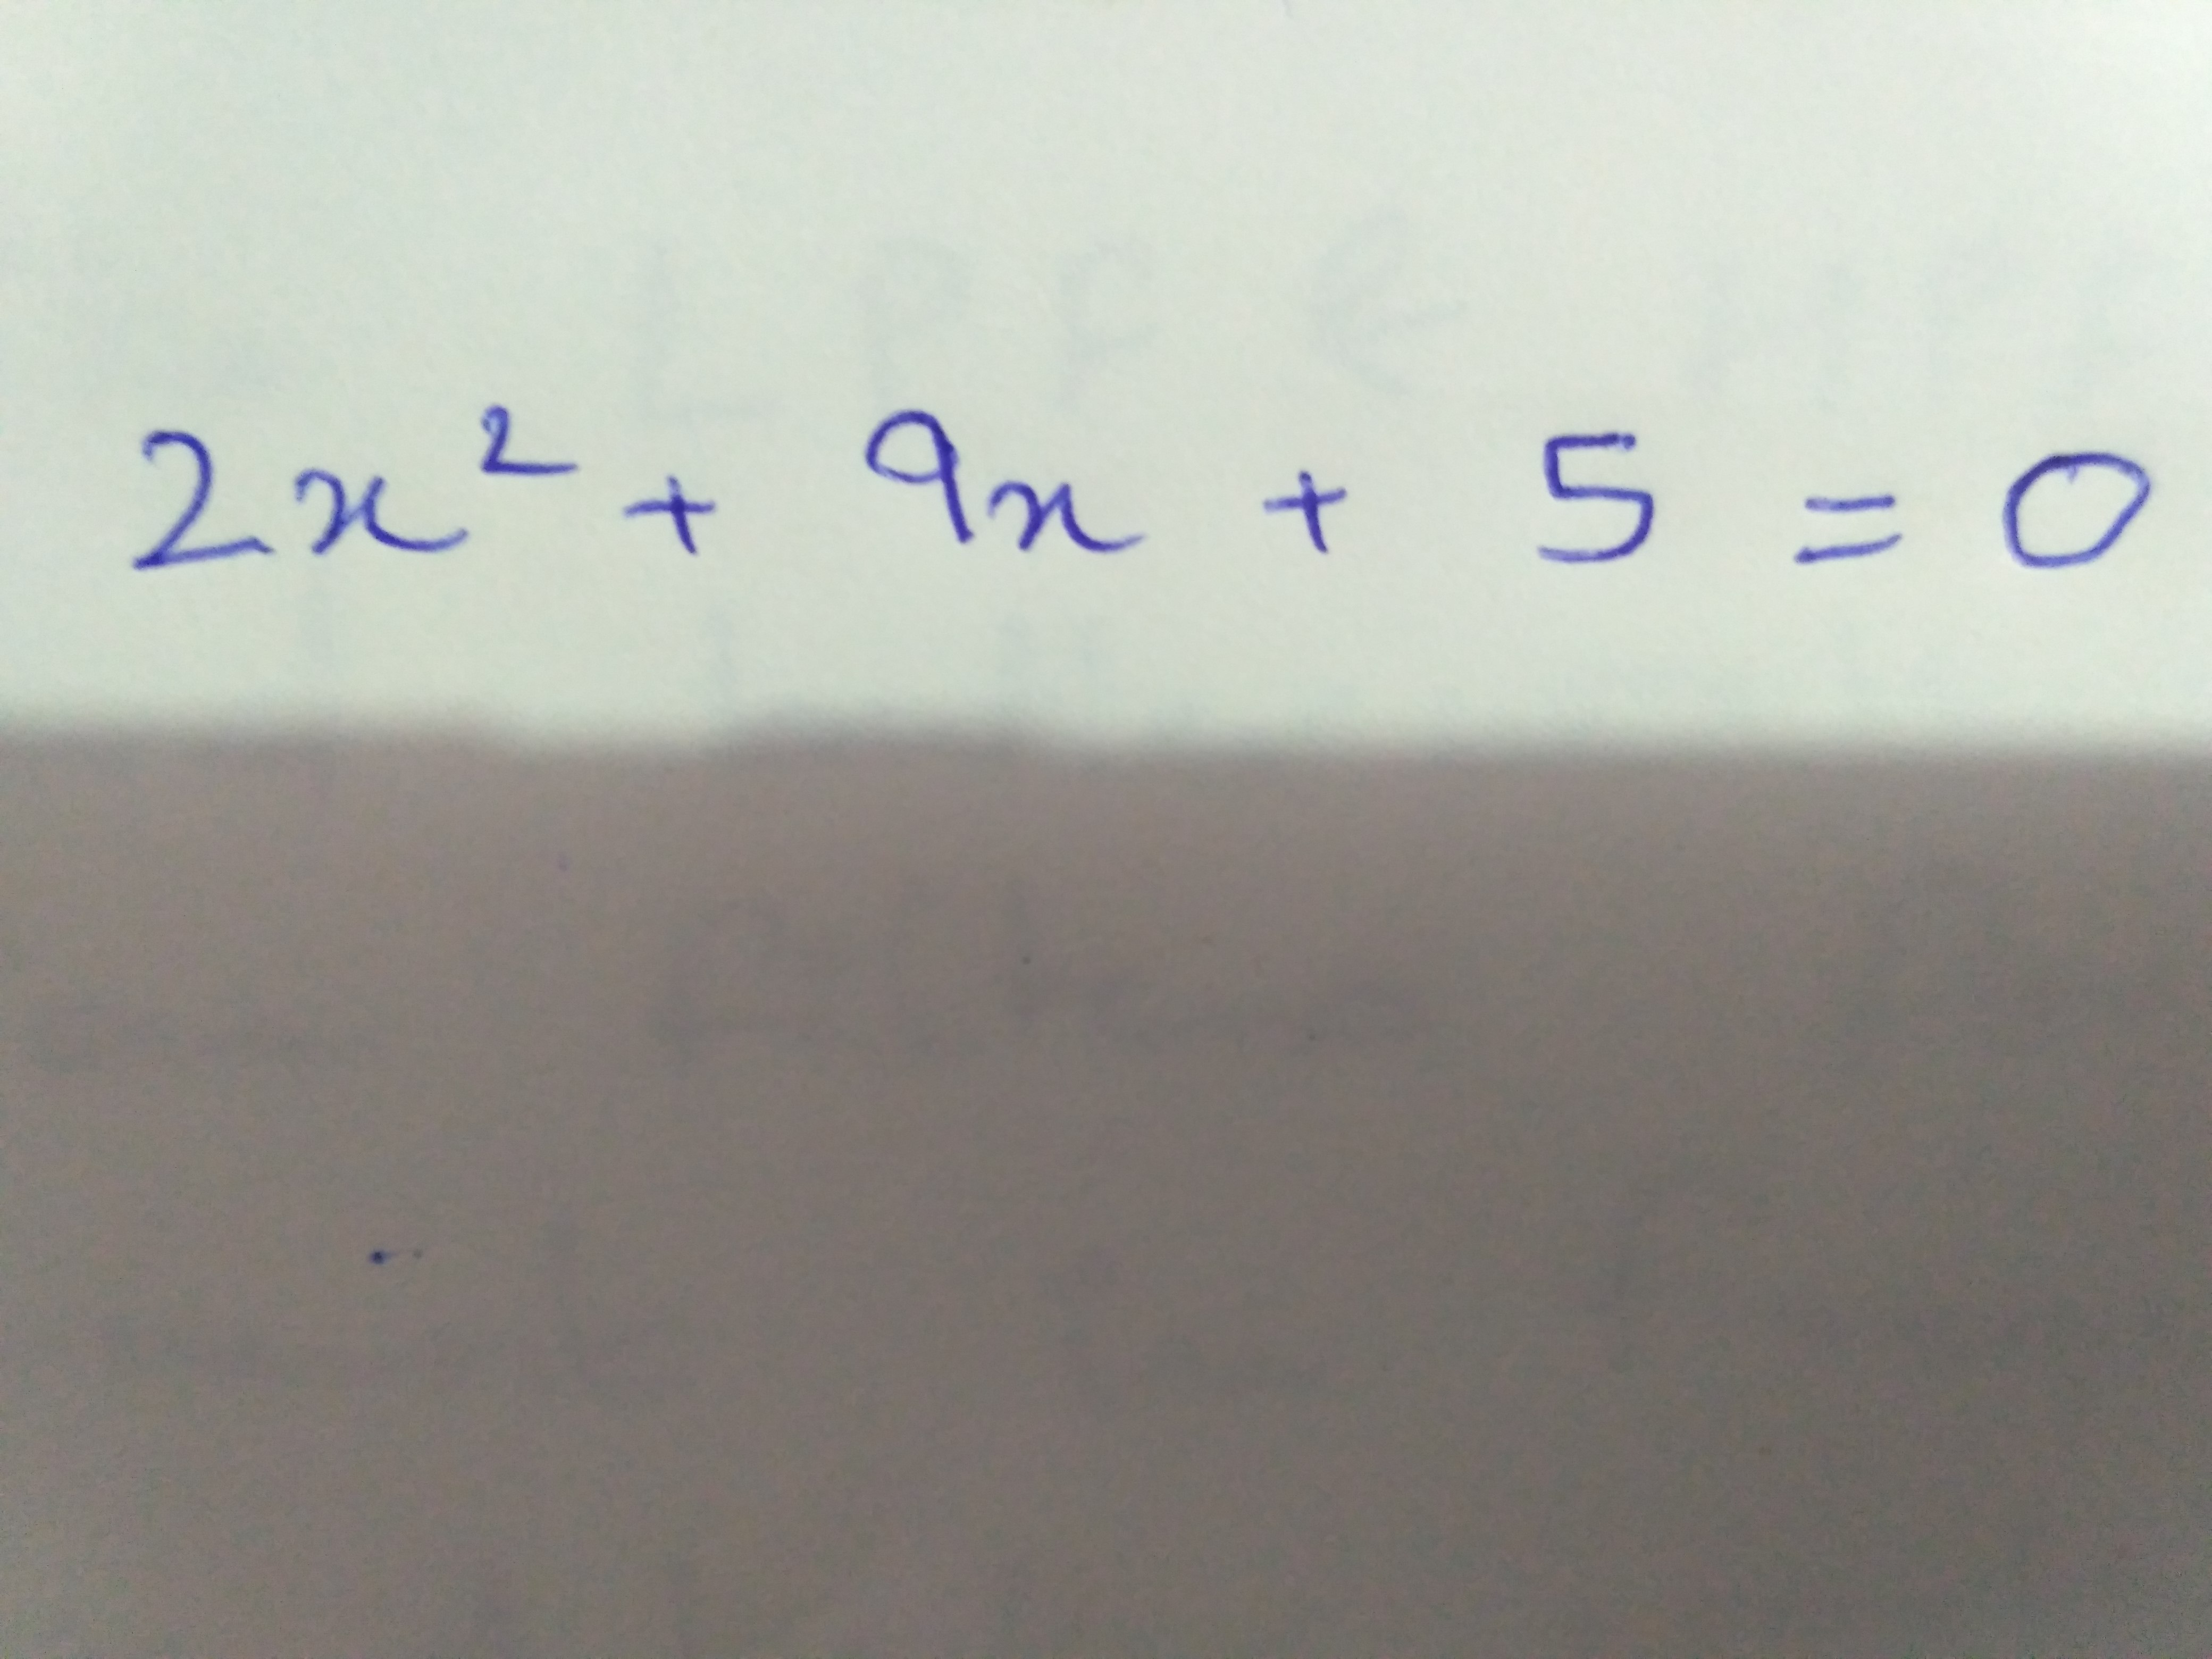 2x² + 9x + 5 = 0